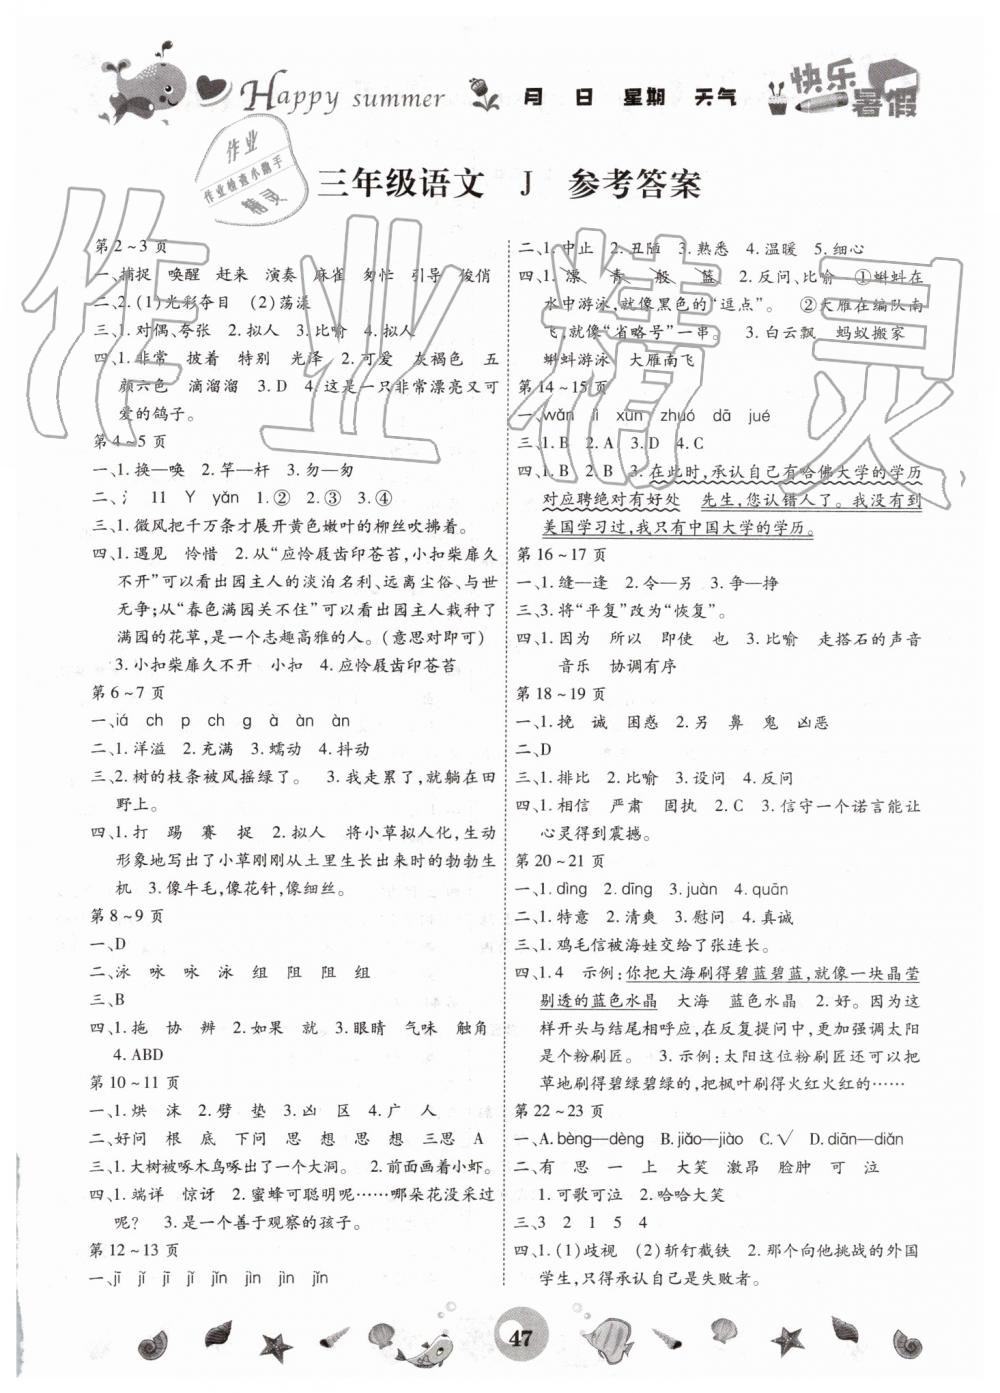 Happy summer 月 日 星期 天气 快乐暑假
作业
作业检查小助手
精灵
三年级语文 J 参考答案
第2~3页
一、捕捉 唤醒 赶来 演奏 麻雀 匆忙 引导 俊俏
二、2.(1)光彩夺目 (2)荡漾
三、1.对偶、夸张 2.拟人 3.比喻 4.拟人
四、1.非常 披着 特别 光泽 2.可爱 灰褐色 五
颜六色 滴溜溜 3.D 4.这是一只非常漂亮又可
爱的鸽子。
第4~5页
一、1.换—唤 2.竿—杆 3.勿—匆
二、氵 11 Y yǎn 1.② 2.③ 3.④
三、1.微风把千万条才展开黄色嫩叶的柳丝吹拂着。
四、1.遇见 怜惜 2.从“应怜屐齿印苍苔,小扣柴扉久
不开”可以看出园主人的淡泊名利、远离尘俗、与世
无争;从“春色满园关不住”可以看出园主人栽种了
满园的花草,是一个志趣高雅的人。(意思对即可)
3.小扣柴扉久不开 小扣 4.应怜屐齿印苍苔
第6~7页
一、iá ch p ch g à àn àn
二、1.洋溢 2.充满 3.蠕动 4.抖动
三、2.树的枝条被风摇绿了。 3.我走累了,就躺在田
野上。
四、1.打 踢 赛 捉 2.拟人 将小草拟人化,生动
形象地写出了小草刚刚从土里生长出来时的勃勃生
机 3.像牛毛,像花针,像细丝。
第8~9页
一、D
二、泳 咏 咏 泳 组 阻 阻 组
三、B
四、1.拖 协 辨 2.如果 就 3.眼睛 气味 触角
4.ABD
第10~11页
一、1.烘 沫 2.劈 垫 3.凶 区 4.广 人
二、好问 根 底 下问 思 想 思 想 三思 A
三、1.大树被啄木鸟啄出了一个大洞。 2.前面画着小虾。
四、1.端详 惊讶 2.蜜蜂可聪明呢……哪朵花没采过
呢? 3.是一个善于观察的孩子。
第12~13页
一、jǐ jǐ jī jī jīn jìn jìn jǐn
二、1.中止 2.丑陋 3.熟悉 4.温暖 5.细心
四、1.漂 青 般 蓝 2.反问、比喻 ①蝌蚪在
水中游泳,就像黑色的“逗点”。 ②大雁在编队南
飞,就像“省略号”一串。 3.白云飘 蚂蚁搬家
蝌蚪游泳 大雁南飞
第14~15页
一、wǎn jì xùn zhuó dā jué
三、1.B 2.A 3.D 4.C
四、1.B 2.B 3.在此时,承认自己有哈佛大学的学历
对应聘绝对有好处 先生,您认错人了。我没有到
美国学习过,我只有中国大学的学历。
第16~17页
一、1.缝—逢 2.令—另 3.争—挣
三、3.将“平复”改为“恢复”。
四、1.因为 所以 即使 也 3.比喻 走搭石的声音
音乐 协调有序
第18~19页
一、1.挽 诚 困惑 2.另 鼻 鬼 凶恶
二、D
三、1.排比 2.比喻 3.设问 4.反问
四、1.相信 严肃 固执 2.C 3.信守一个诺言能让
心灵得到震撼。
第20~21页
一、1.dìng 2.dīng 3.juàn 4.quān
二、1.特意 2.清爽 3.慰问 4.真诚
三、1.鸡毛信被海娃交给了张连长。
四、1.4 示例:你把大海刷得碧蓝碧蓝,就像一块晶莹
剔透的蓝色水晶 大海 蓝色水晶 2.好。因为这
样开头与结尾相呼应,在反复提问中,更加强调太阳
是个粉刷匠。 3.示例:太阳这位粉刷匠还可以把
草地刷得碧绿碧绿的,把枫叶刷得火红火红的……
第22~23页
一、A.bèng—dèng B.jiǎo—jiào C.√ D.diān—diǎn
二、有 思 一 上 大笑 激昂 脸肿 可 泣
1.可歌可泣 2.哈哈大笑
三、3 2 1 5 4
四、1.(1)歧视 (2)斩钉截铁 2.那个向他挑战的外国
学生,只得承认自己是失败者。
47
作业精灵